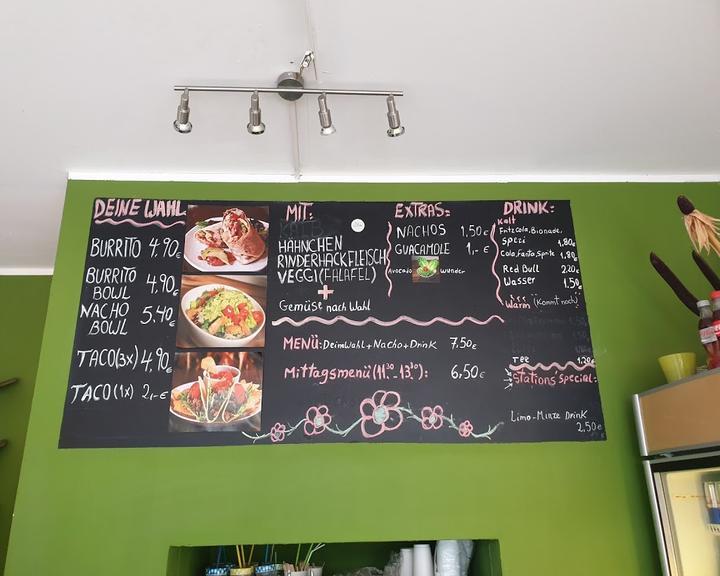 DEINE WAHL
BURRITO 4,90€
BURRITO BOWL 4,90€
NACHO BOWL 5,40€
TACO(3x) 4,90€
TACO(1x) 2,-€
MIT:
KALB
HÄHNCHEN
RINDERHACKFLEISCH
VEGGI(FALAFEL)
+
Gemüse nach Wahl
EXTRAS:
NACHOS 1,50€
GUACAMOLE 1,-€
Avocado Wunder
MENÜ: DeineWahl+Nacho+Drink 7,50€
Mittagsmenü(11³⁰-13³⁰): 6,50€
DRINK:
Kalt
Fritz Cola, Bionade,
Spezi 1,80€
Cola, Fanta, Sprite 1,80€
Red Bull 2,20€
Wasser 1,50€
Warm (Kommt noch)
TEE 1,20€
Stations Special:
Limo-Minze Drink
2,50€